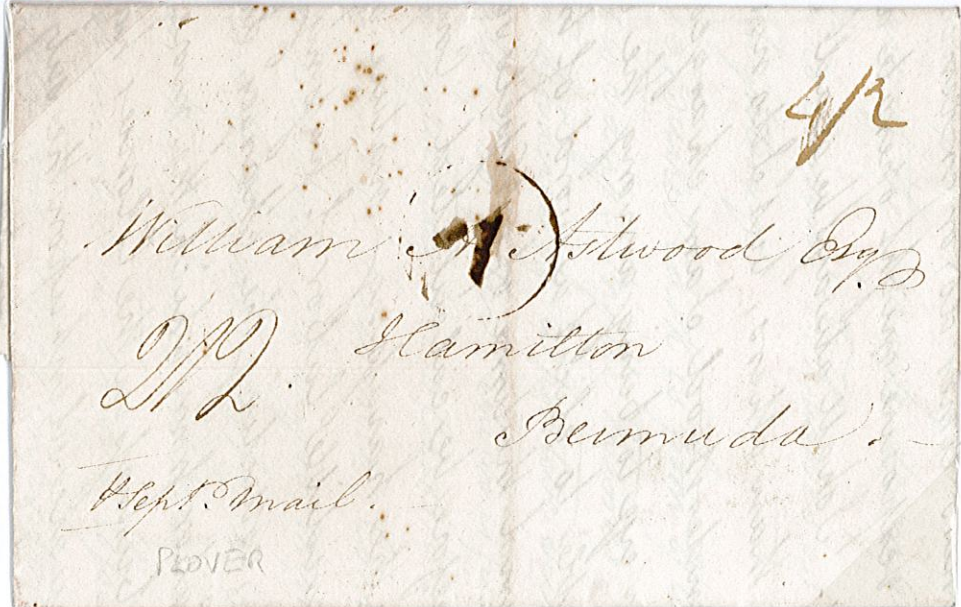 4/2
1
William Astwood Esqr
Hamilton
2/2
Bermuda.
Sept. Mail.
PLOVER